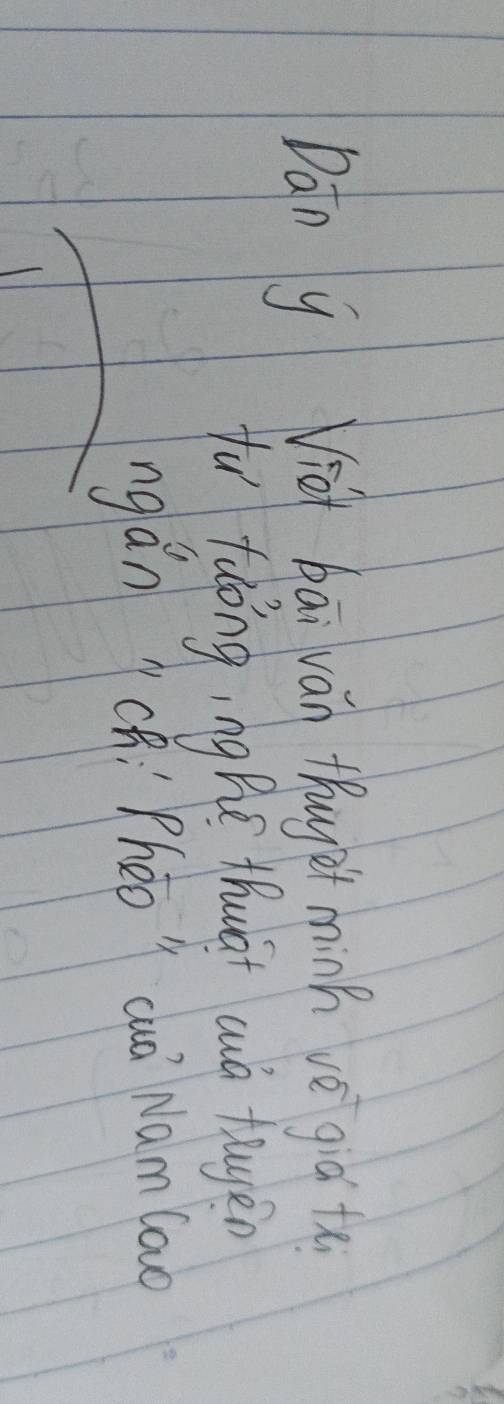 Dàn ý Viết bài văn thuyết minh về giá trị
tư tưởng, nghệ thuật của truyện
ngắn "Chí Phèo" của Nam Cao